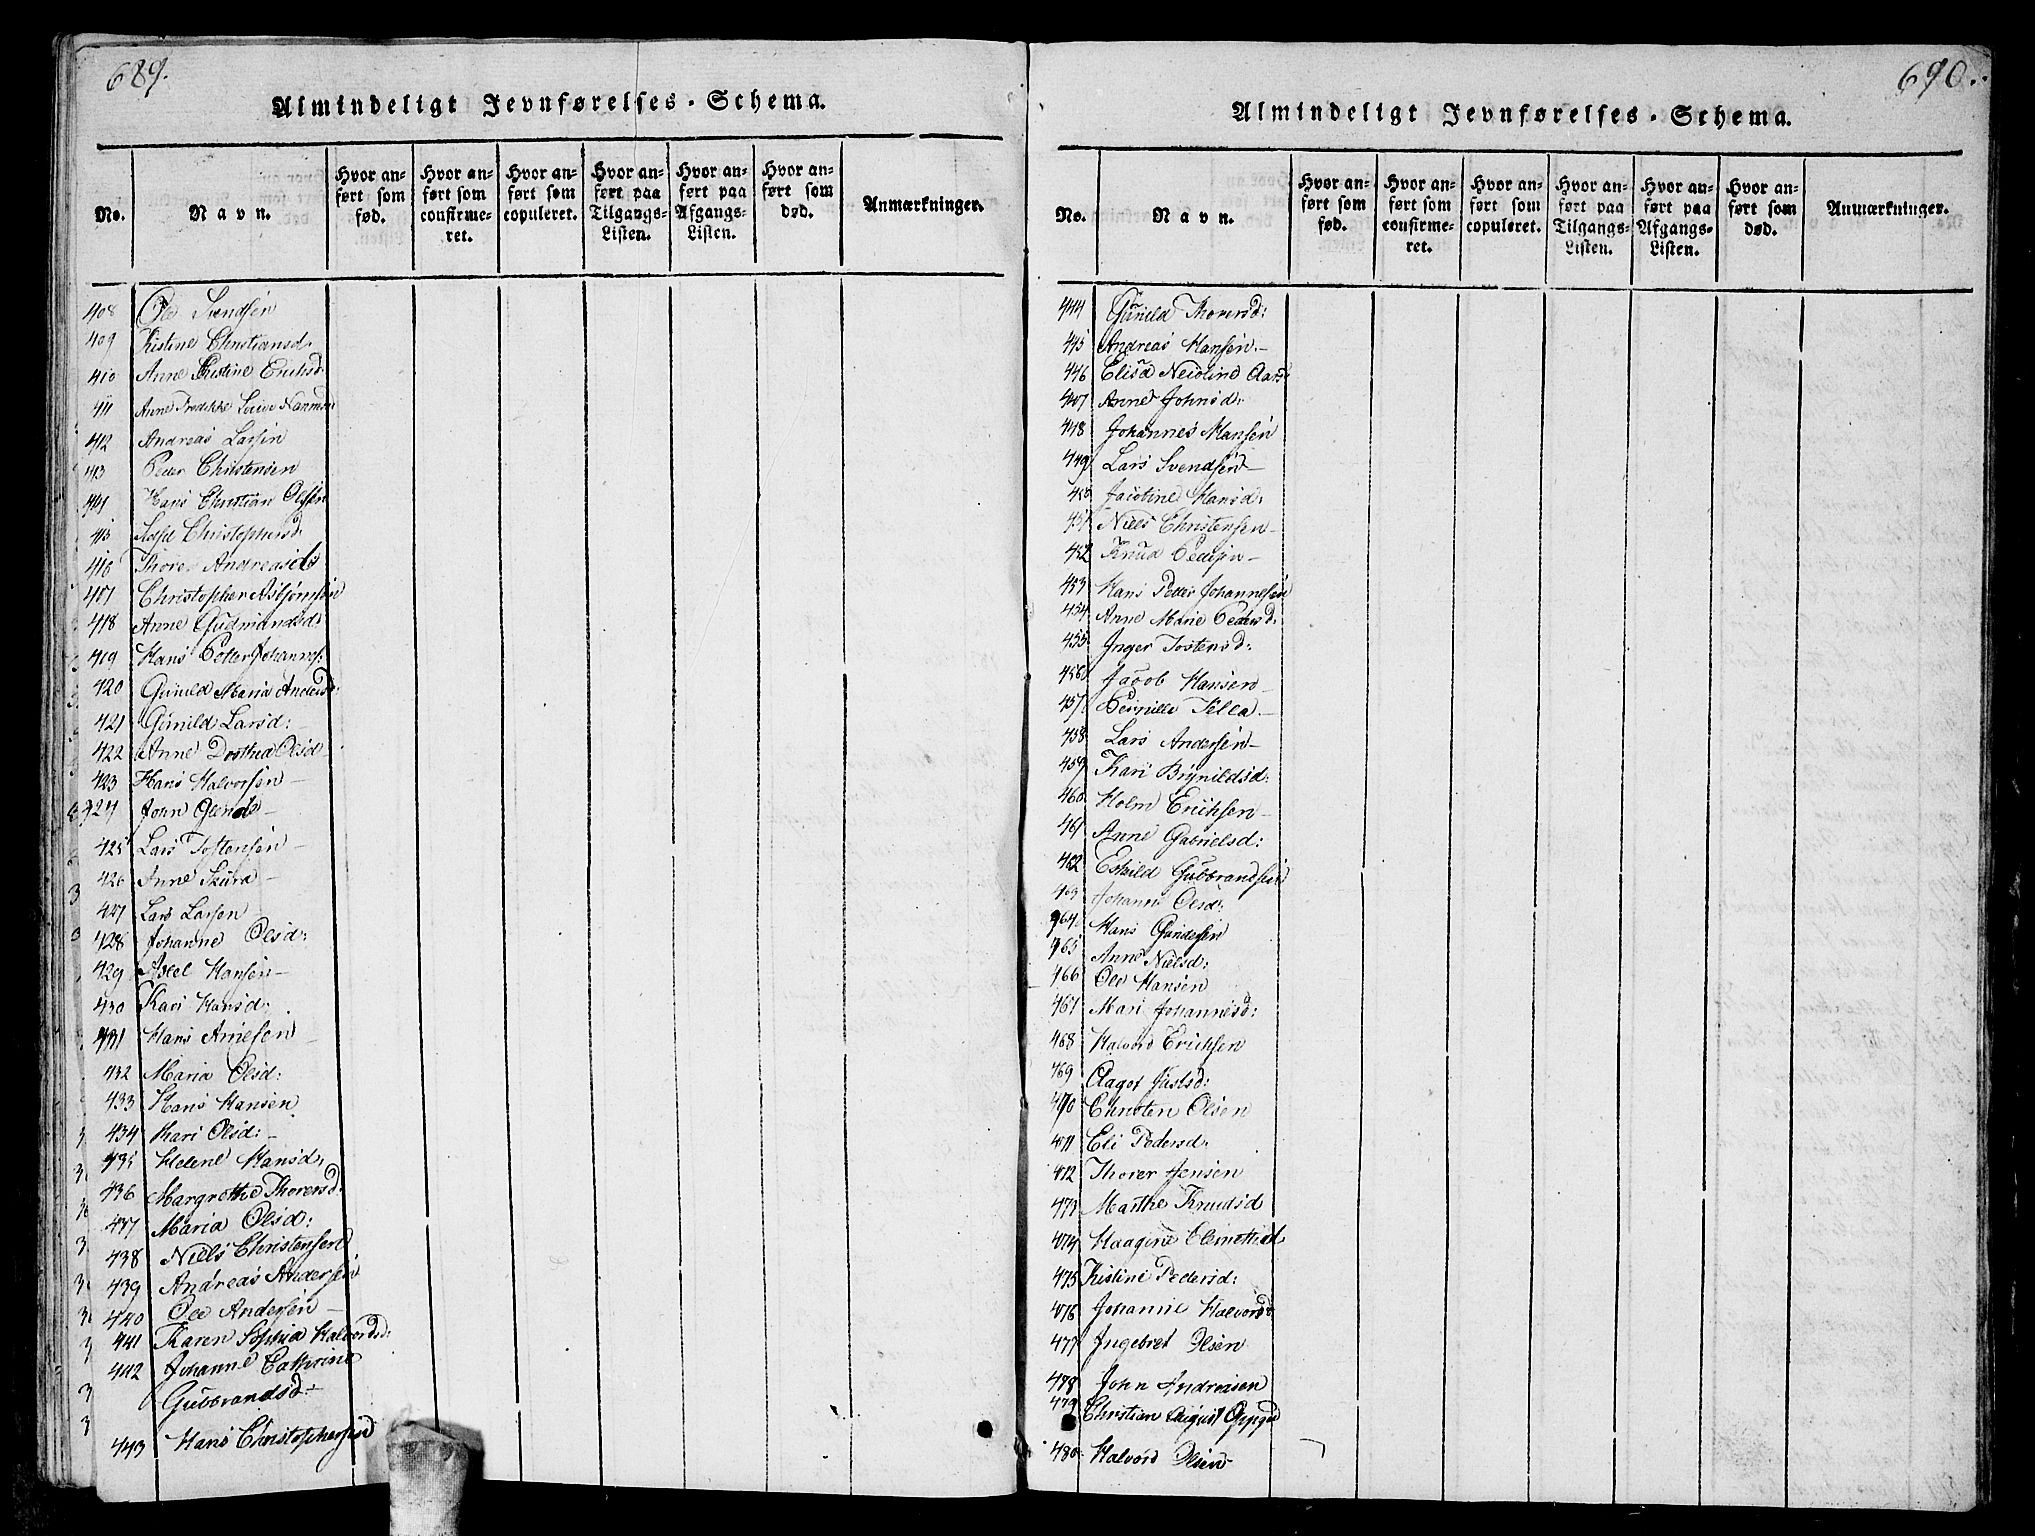 689.
Almindeligt Jevnførelses-Schema.
No.
Navn.
Hvor an-
ført som
fød.
Hvor an-
ført som
confirme-
ret.
Hvor an-
ført som
copuleret.
Hvor an-
ført paa
Tilgangs-
Listen.
Hvor an-
ført paa
Afgangs-
Listen.
Hvor an-
ført som
død.
Anmærkninger.
408 Ole Svendsen
409 Kistine Christiansd.
410 Anne Kristine Erichsd
411 Anne Fredrikke Lovise
412 Andreas Larsen
413 Peder Christensen
414 Hans Christian Olsen
415 Christophersd.
416 Thore Andreasd
417 Christopher Asbjørnsen
418 Anne Gudmandsd:
419 Hans Petter Johannes:
420 Gunild Maria Andersd:
421 Gunild Larsd:
422 Anne Dorthea Olsd
423 Hans Halvorsen –
424 John –
425 Lars Tostensen –
426 Anne Skura –
427 Lars Larsen
428 Johanne Olsd:
429 Axel Hansen –
430 Kari Hansd:
431 Hans Arnesen –
432 Maria Olsd:
433 Hans Hansen
434 Kari Olsd: –
435 Helene Hansd:
436 Margrethe Thoresd:
437 Maria Olsd:
438 Niels Christensen
439 Andreas Andersen
440 Ole Andersen –
441 Karen Sophia Halvorsd:
442 Johanne Cathrine
Gulbrandsd –
443 Hans Christophersen
690.
Almindeligt Jevnførelses-Schema.
No.
Navn.
Hvor an-
ført som
fød.
Hvor an-
ført som
confirme-
ret.
Hvor an-
ført som
copuleret.
Hvor an-
ført paa
Tilgangs-
Listen.
Hvor an-
ført paa
Afgangs-
Listen.
Hvor an-
ført som
død.
Anmærkninger.
444 Gunild Thoresd:
445 Andreas Hansen. –
446 Elisa Nicoline
447 Anne Johnsd:
448 Johannes Hansen
449 Lars Svendsen –
450 Jacobine Hansd:
451 Niels Christensen –
452 Knud Pedersen –
453 Hans Petter Johannesen
454 Anne Marie Pedersd:
455 Inger Tostensd:
456 Jacob Hansen –
457 Pernille –
458 Lars Andersen –
459 Kari Brynildsd:
460 Holm Erichsen –
461 Anne Gabrielsd:
462 Eskild Gulbrandsen
463 Johanne Olsd:
464 Hans Gundersen
465 Anne Nielsd:
466 Ole Hansen
467 Mari Johannesd:
468 Halvord Erichsen
469 Aagot Justsd:
470 Christen Olsen
471 Eli Pedersd.
472 Thorer Jensen
473 Marthe Knudsd
474 Haagine Clemettsd
475 Kistine Pedersd:
476 Johanne Halvorsd
477 Ingebret Olsen
478 John Andreasen
479 Christian August Oppgd
480 Halvord Olsen